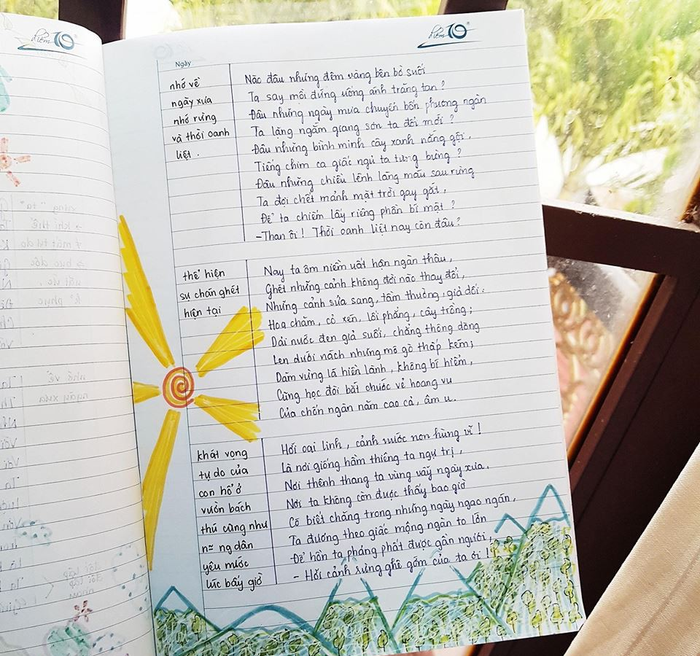 điểm 10
Ngày
nhớ về
ngày xưa
nhớ rừng
và thời oanh
liệt.
Nào đâu những đêm vàng bên bờ suối
Ta say mồi đứng uống ánh trăng tan?
Đâu những ngày mưa chuyển bốn phương ngàn
Ta lặng ngắm giang sơn ta đổi mới?
Đâu những bình minh cây xanh nắng gội,
Tiếng chim ca giấc ngủ ta tưng bừng?
Đâu những chiều lênh láng máu sau rừng
Ta đợi chết mảnh mặt trời gay gắt,
Để ta chiếm lấy riêng phần bí mật?
-Than ôi! Thời oanh liệt nay còn đâu?
thể hiện
sự chán ghét
hiện tại
Nay ta ôm niềm uất hận ngàn thâu,
Ghét những cảnh không đời nào thay đổi,
Những cảnh sửa sang, tầm thường, giả dối.
Hoa chăm, cỏ xén, lối phẳng, cây trồng;
Dải nước đen giả suối, chẳng thông dòng
Len dưới nách những mô gò thấp kém;
Dăm vừng lá hiền lành, không bí hiểm,
Cũng học đòi bắt chước vẻ hoang vu
Của chốn ngàn năm cao cả, âm u.
khát vọng
tự do của
con hổ ở
vườn bách
thú cũng như
ng dân
yêu nước
lúc bấy giờ
Hỡi oai linh, cảnh nước non hùng vĩ!
Là nơi giống hầm thiêng ta ngự trị,
Nơi thênh thang ta vùng vẫy ngày xưa.
Nơi ta không còn được thấy bao giờ
Có biết chăng trong những ngày ngao ngán,
Ta đương theo giấc mộng ngàn to lớn
Để hồn ta phảng phất được gần ngươi
- Hỡi cảnh rừng ghê gớm của ta ơi!